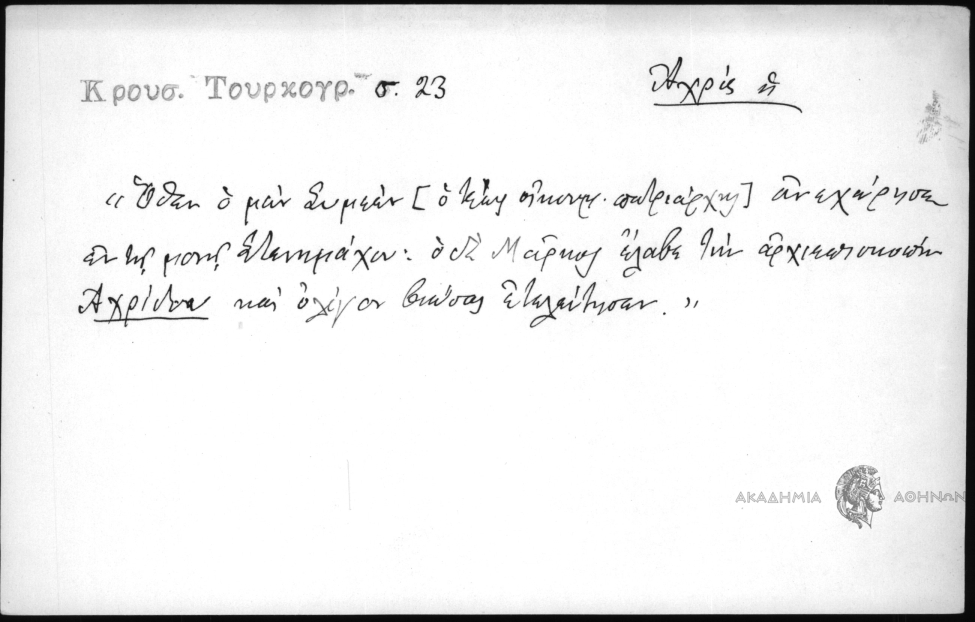 Κρουσ. Τουρκογρ. σ. 23
Ἀχρίς ἡ
«Ὅθεν ὁ μὲν Συμεὼν [ὁ τέως οἰκουμ. πατριάρχης] ἀνεχώρησε
ἐν τῆς μονῆς Στενημάχου: ὁ δὲ Μάρκος ἔλαβε τὴν ἀρχιεπισκοπὴν
Ἀχρίδα καὶ ὀλίγον βιώσας ἐτελεύτησεν.»
ΑΚΑΔΗΜΙΑ ΑΘΗΝΩΝ